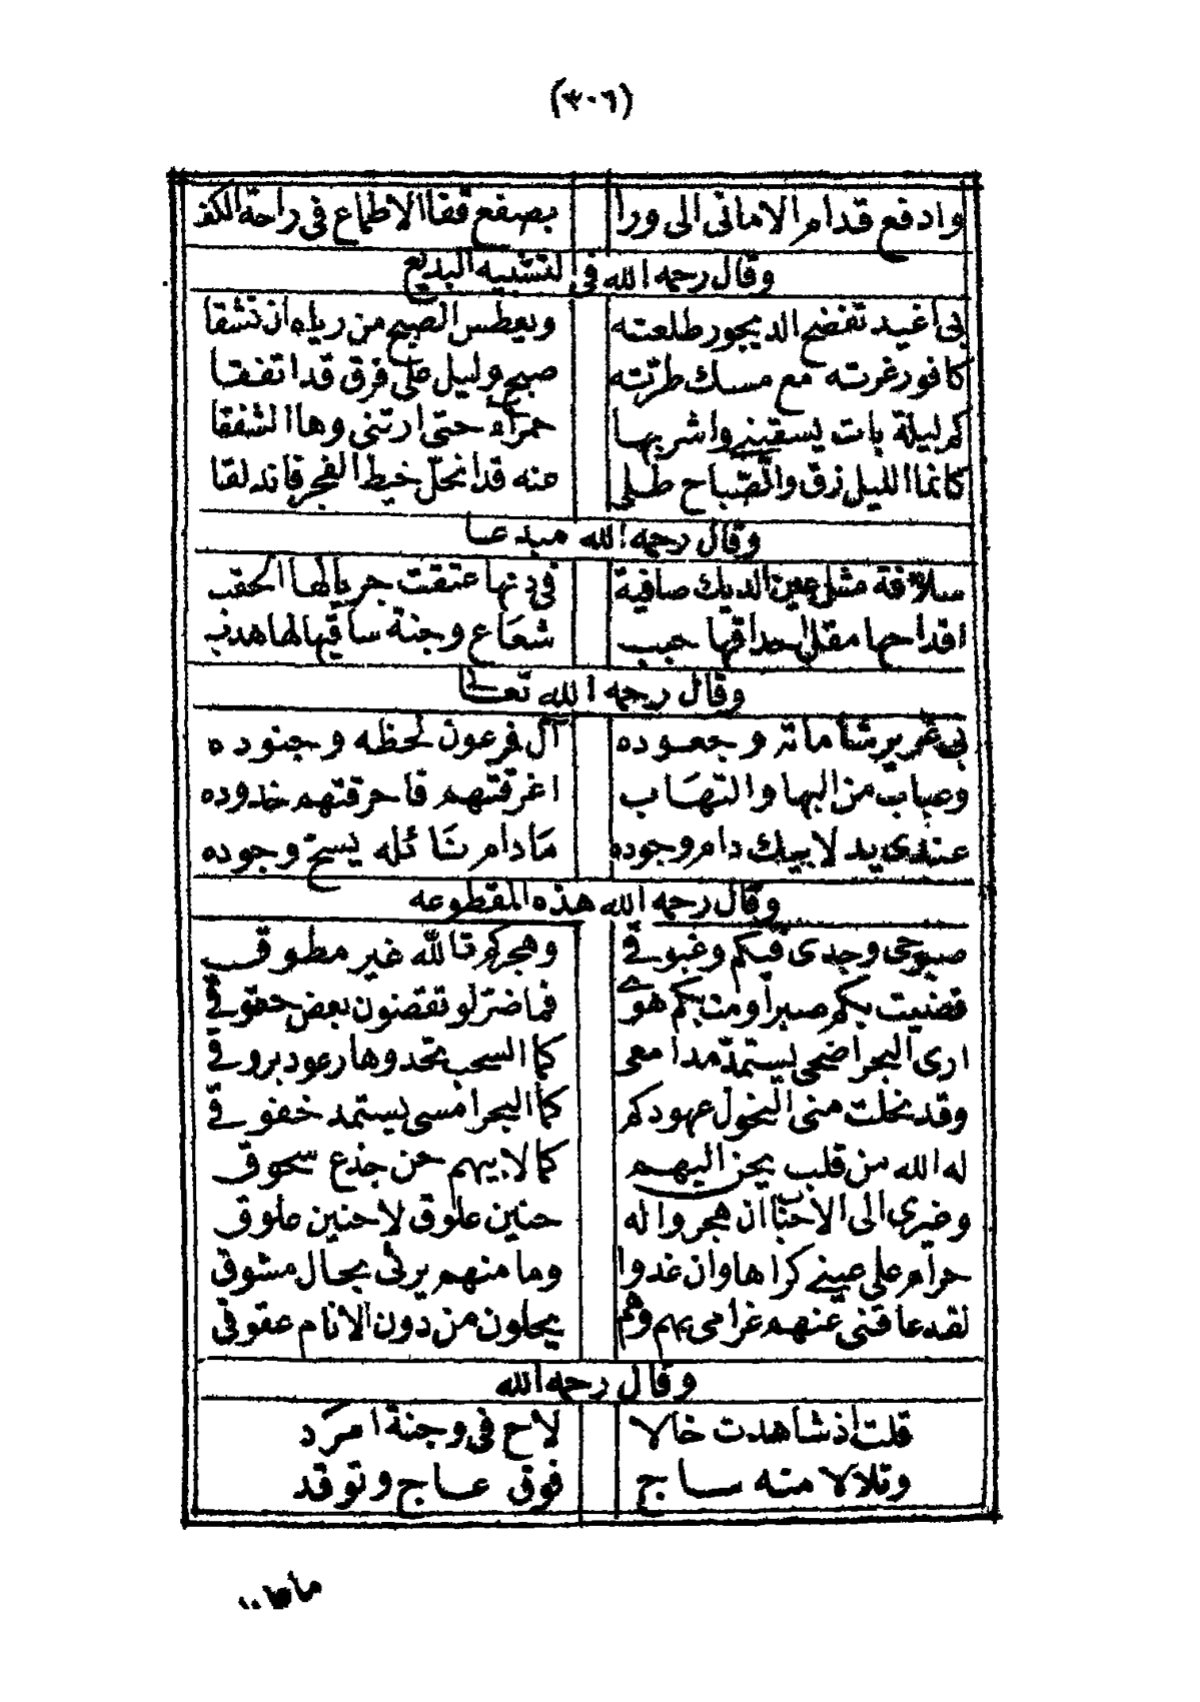 (٣٠٦)
وادفع قدام الامانى الى ورا بصفع قفا الاطماع فى راحة الكف
وقال رحمه الله فى التشبيه البديع
بى اغيد تفضح الديجور طلعته ويعطس الصبح من رياه ان نشقا
كافور غرته مع مسك طرته صبح وليل على فرق قد اتفقا
كم ليلة بات يسقينى واشربها حمراء حتى ارتنى وها الشفقا
كانما الليل زق والصباح طلى منه قد انحل خيط الفجر فاندلقا
وقال رحمه الله مبدعا
سلافة مثل عين الديك صافية فى دنها عتقت جريالها الحقب
اقداحها مقل احداقها حبب شعاع وجنة ساقيها لها هدب
وقال رحمه الله تعالى
بى غرير شاماته وجعوده آل فرعون لحظه وجنوده
وعباب من البها والتهاب اغرقتهم فاحرقتهم خدوده
عندى يد لابيك دام وجوده مادام نائله يسح وجوده
وقال رحمه الله هذه المقطوعه
صبوحى وجدى فيكم وغبوقى وهجركم تالله غير مطوق
قضيت بكم صبراً ومت بكم هوى فما ضر لو تقضون بعض حقوقى
ارى البحر اضحى يستمد مدامعى كما السحب تحدوها رعود بروقى
وقد نحلت منى النحول عهودكم كما البحر امسى يستمد خفوقى
له الله من قلب يحن اليهم كما لابيهم حن جذع سحوق
وضرى الى الاحباب ان هجروا له حنين علوق لا حنين علوق
حرام على عينى كراها وان غدوا وما منهم يرثى بحال مشوق
لقد عاقنى عنهم غرامى بهم وهم يحلون من دون الانام عقوقى
وقال رحمه الله
قلت اذ شاهدت خالا لاح فى وجنة امرد
وتلالا منه ساج فوق عاج وتوقد